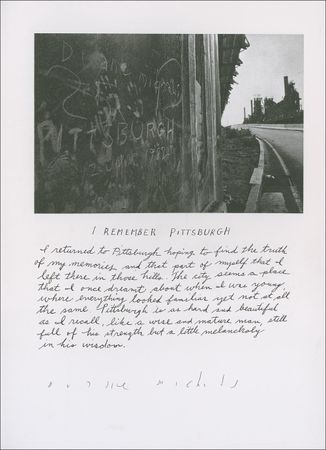 PITTSBURGH
I REMEMBER PITTSBURGH
I returned to Pittsburgh hoping to find the truth
of my memories and that part of myself that I
left there in those hills. The city seems a place
that I once dreamt about when I was young,
where everything looked familiar yet not at all
the same. Pittsburgh is as hard and beautiful
as I recall, like a wise and mature man, still
full of his strength but a little melancholy
in his wisdom.